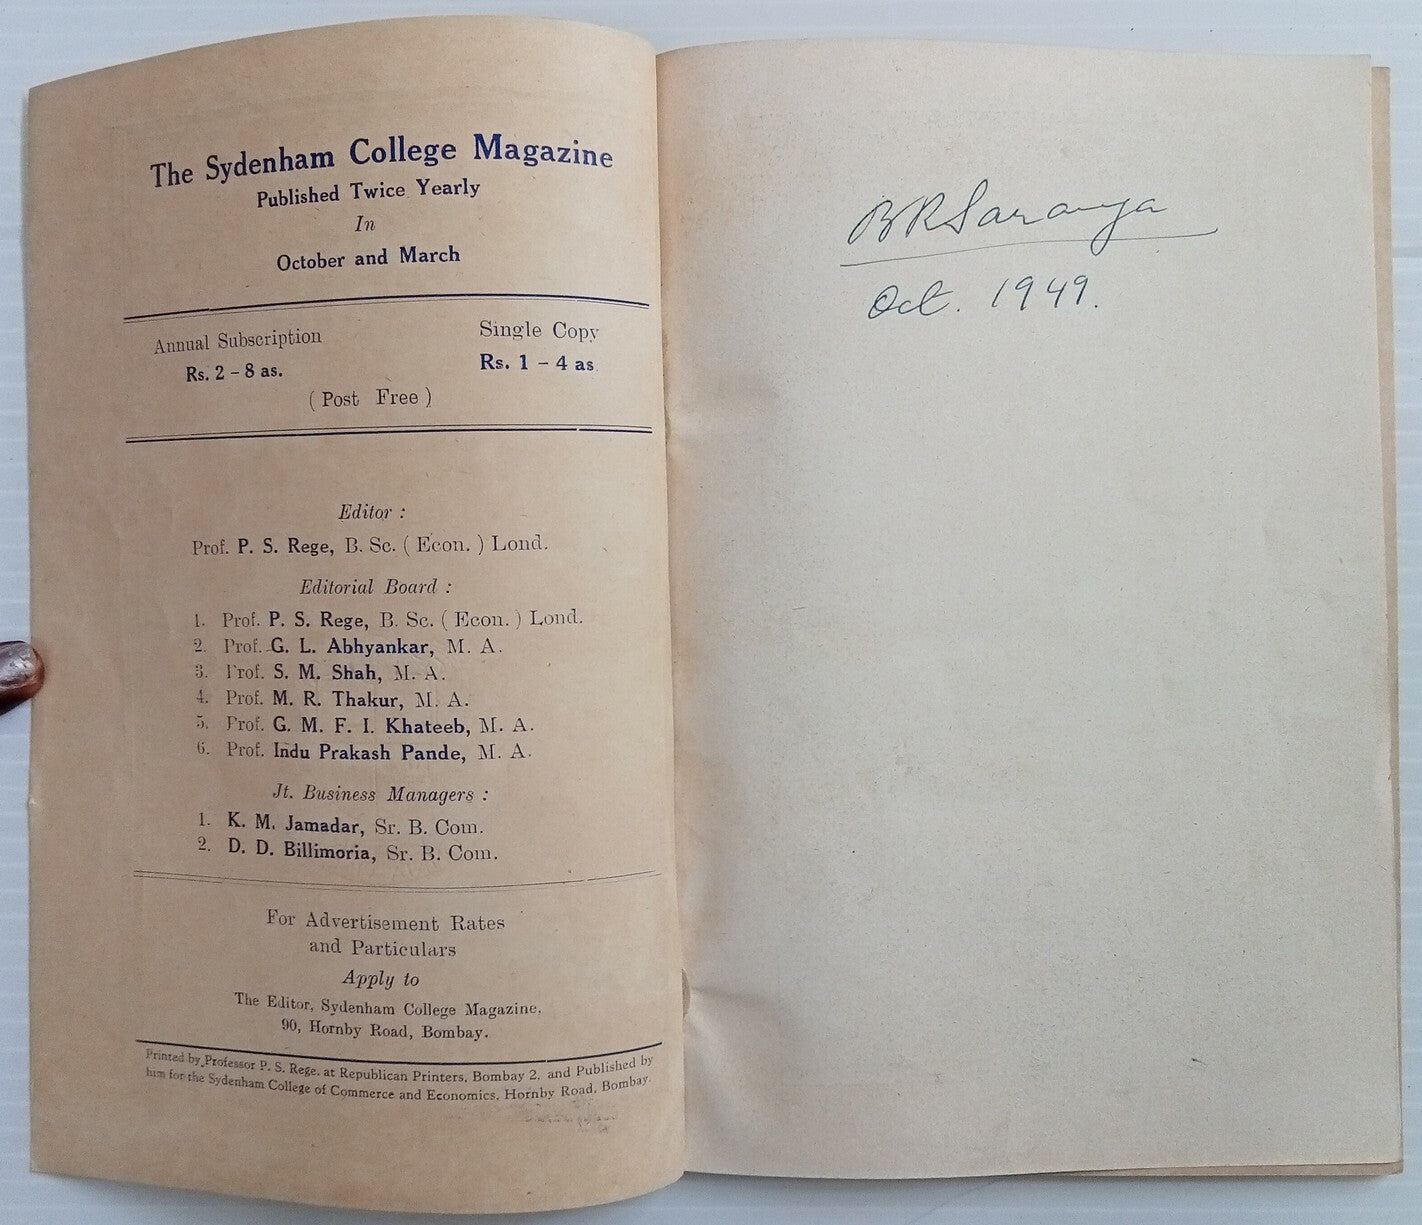 The Sydenham College Magazine
Published Twice Yearly
In
October and March
Annual Subscription
Rs. 2 - 8 as.
Single Copy
Rs. 1 - 4 as.
( Post Free )
Editor :
Prof. P. S. Rege, B. Sc. ( Econ. ) Lond.
Editorial Board :
1. Prof. P. S. Rege, B. Sc. ( Econ. ) Lond.
2. Prof. G. L. Abhyankar, M. A.
3. Prof. S. M. Shah, M. A.
4. Prof. M. R. Thakur, M. A.
5. Prof. G. M. F. I. Khateeb, M. A.
6. Prof. Indu Prakash Pande, M. A.
Jt. Business Managers :
1. K. M. Jamadar, Sr. B. Com.
2. D. D. Billimoria, Sr. B. Com.
For Advertisement Rates
and Particulars
Apply to
The Editor, Sydenham College Magazine,
90, Hornby Road, Bombay.
Printed by Professor P. S. Rege, at Republican Printers, Bombay 2, and Published by
him for the Sydenham College of Commerce and Economics, Hornby Road, Bombay.
BRSaraiya
Oct. 1949.